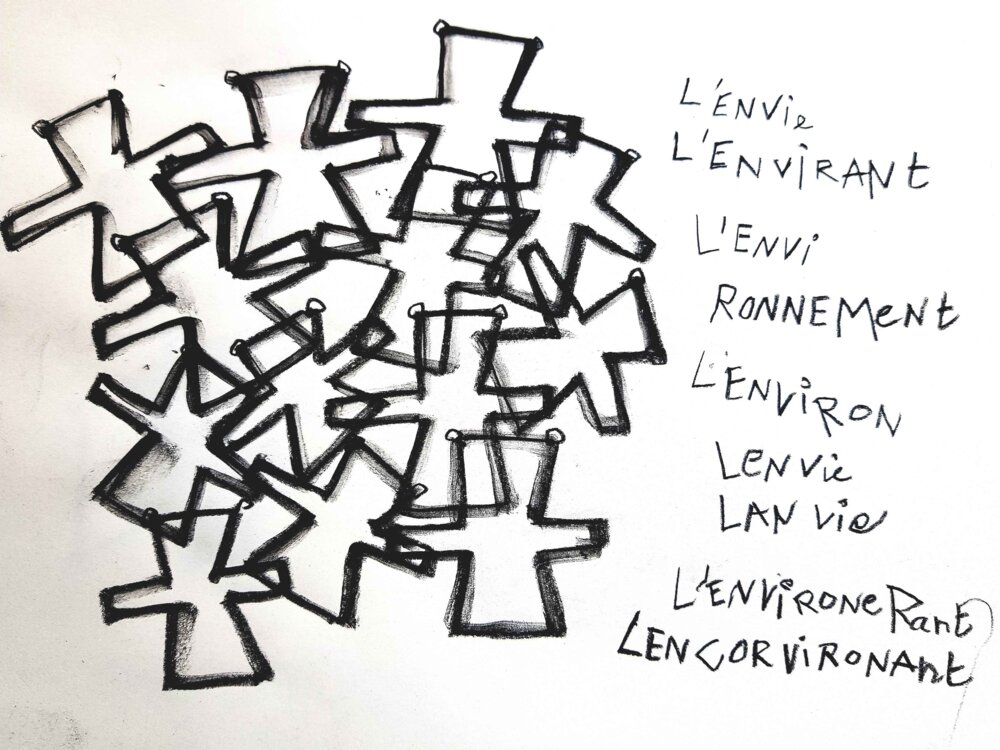 L'ENVie
L'ENViRANt
L'ENVi
RONNEMENt
L'ENViRON
LENVie
LAN Vie
L'ENViRONeRant
LENCORViRONANt